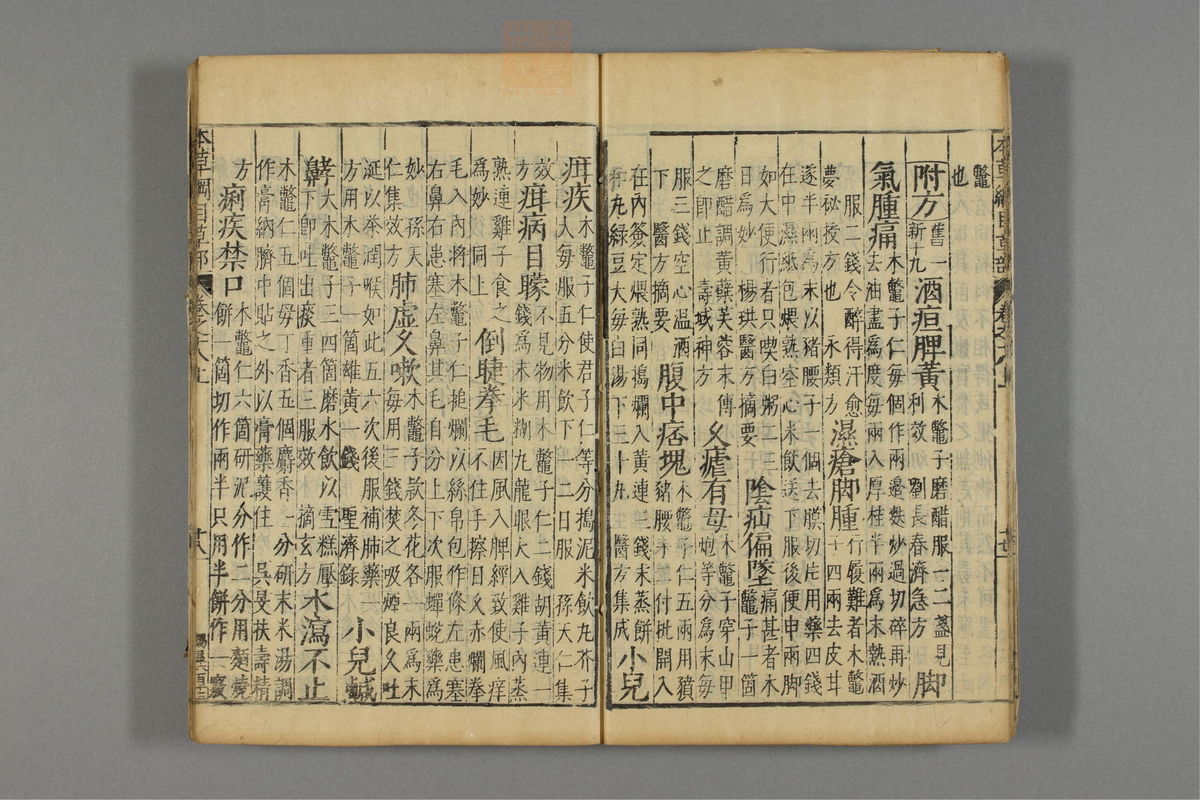 鼈
也
附方舊一新十九酒疸脾黃木鼈子磨醋服一二盞見利效劉長春濟急方脚
氣腫痛木鼈子仁每個作兩邊麩炒過切碎再炒去油盡爲度每兩入厚桂半兩爲末熱酒
服二錢令醉得汗愈夢秘授方也永類方濕瘡脚腫行履難者木鼈子四兩去皮甘
遂半兩爲末以豬腰子一個去膜切片用藥四錢
在中濕紙包煨熟空心米飲送下服後便申兩脚
如大便行者只喫白粥二三日爲妙楊珙醫方摘要陰疝偏墜痛甚者木鼈子一箇
磨醋調黃蘗芙蓉末傅之即止壽域神方久瘧有母木鼈子穿山甲炮等分爲末每
服三錢空心温酒下醫方摘要腹中痞塊木鼈子仁五兩用獖豬腰子付批開入
在內簽定煨熟同搗爛入黃連三錢末蒸餅和丸綠豆大每白湯下三十九醫方集成小兒
疳疾木鼈子仁使君子仁等分搗泥米飲丸芥子大每服五分米飲下一二日服孫天仁集
效方疳病目矇不見物用木鼈子仁二錢胡黃連一錢爲末米糊丸龍眼大入雞子內蒸
熟連雞子食之爲妙同上倒睫拳毛因風入脾經致使風痒不住手擦日久赤爛拳
毛入內將木鼈子仁搥爛以絲帛包作條左患塞
右鼻右患塞左鼻其毛自分上下次服蟬蛻藥爲
妙孫天仁集效方肺虛久嗽木鼈子款冬花各一兩爲末每用三錢焚之吸煙良久吐
涎以茶潤喉如此五六次後服補肺藥一方用木鼈子一箇雄黃一錢聖濟錄小兒鹹
䶎大木鼈子三四箇磨水飲以雪糕壓下即吐出痰重者三服效摘玄方水瀉不止
木鼈仁五個母丁香五個麝香一分研末米湯調
作膏納臍中貼之外以膏藥護住吳旻扶壽精
方痢疾禁口木鼈仁六箇研泥分作二分用麵燒餅一箇切作兩半只用半餅作一竅